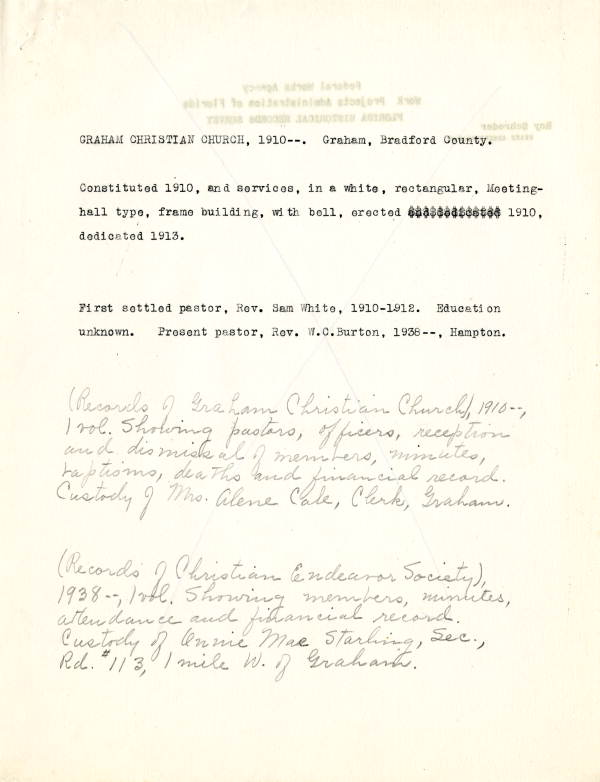 Federal Works Agency
Work Projects Administration of Florida
FLORIDA HISTORICAL RECORDS SURVEY
Roy Schroder
GRAHAM CHRISTIAN CHURCH, 1910--. Graham, Bradford County.
Constituted 1910, and services, in a white, rectangular, Meeting-
hall type, frame building, with bell, erected 1910,
dedicated 1913.
First settled pastor, Rev. Sam White, 1910-1912. Education
unknown. Present pastor, Rev. W.C.Burton, 1938--, Hampton.
(Records of Graham Christian Church), 1910--,
1 vol. Showing pastors, officers, reception
and dismissal of members, minutes,
baptisms, deaths and financial record.
Custody of Mrs. Alene Cale, Clerk, Graham.
(Records of Christian Endeavor Society),
1938--, 1 vol. Showing members, minutes,
attendance and financial record.
Custody of Annie Mae Starling, Sec.,
Rd. #113, 1 mile W. of Graham.